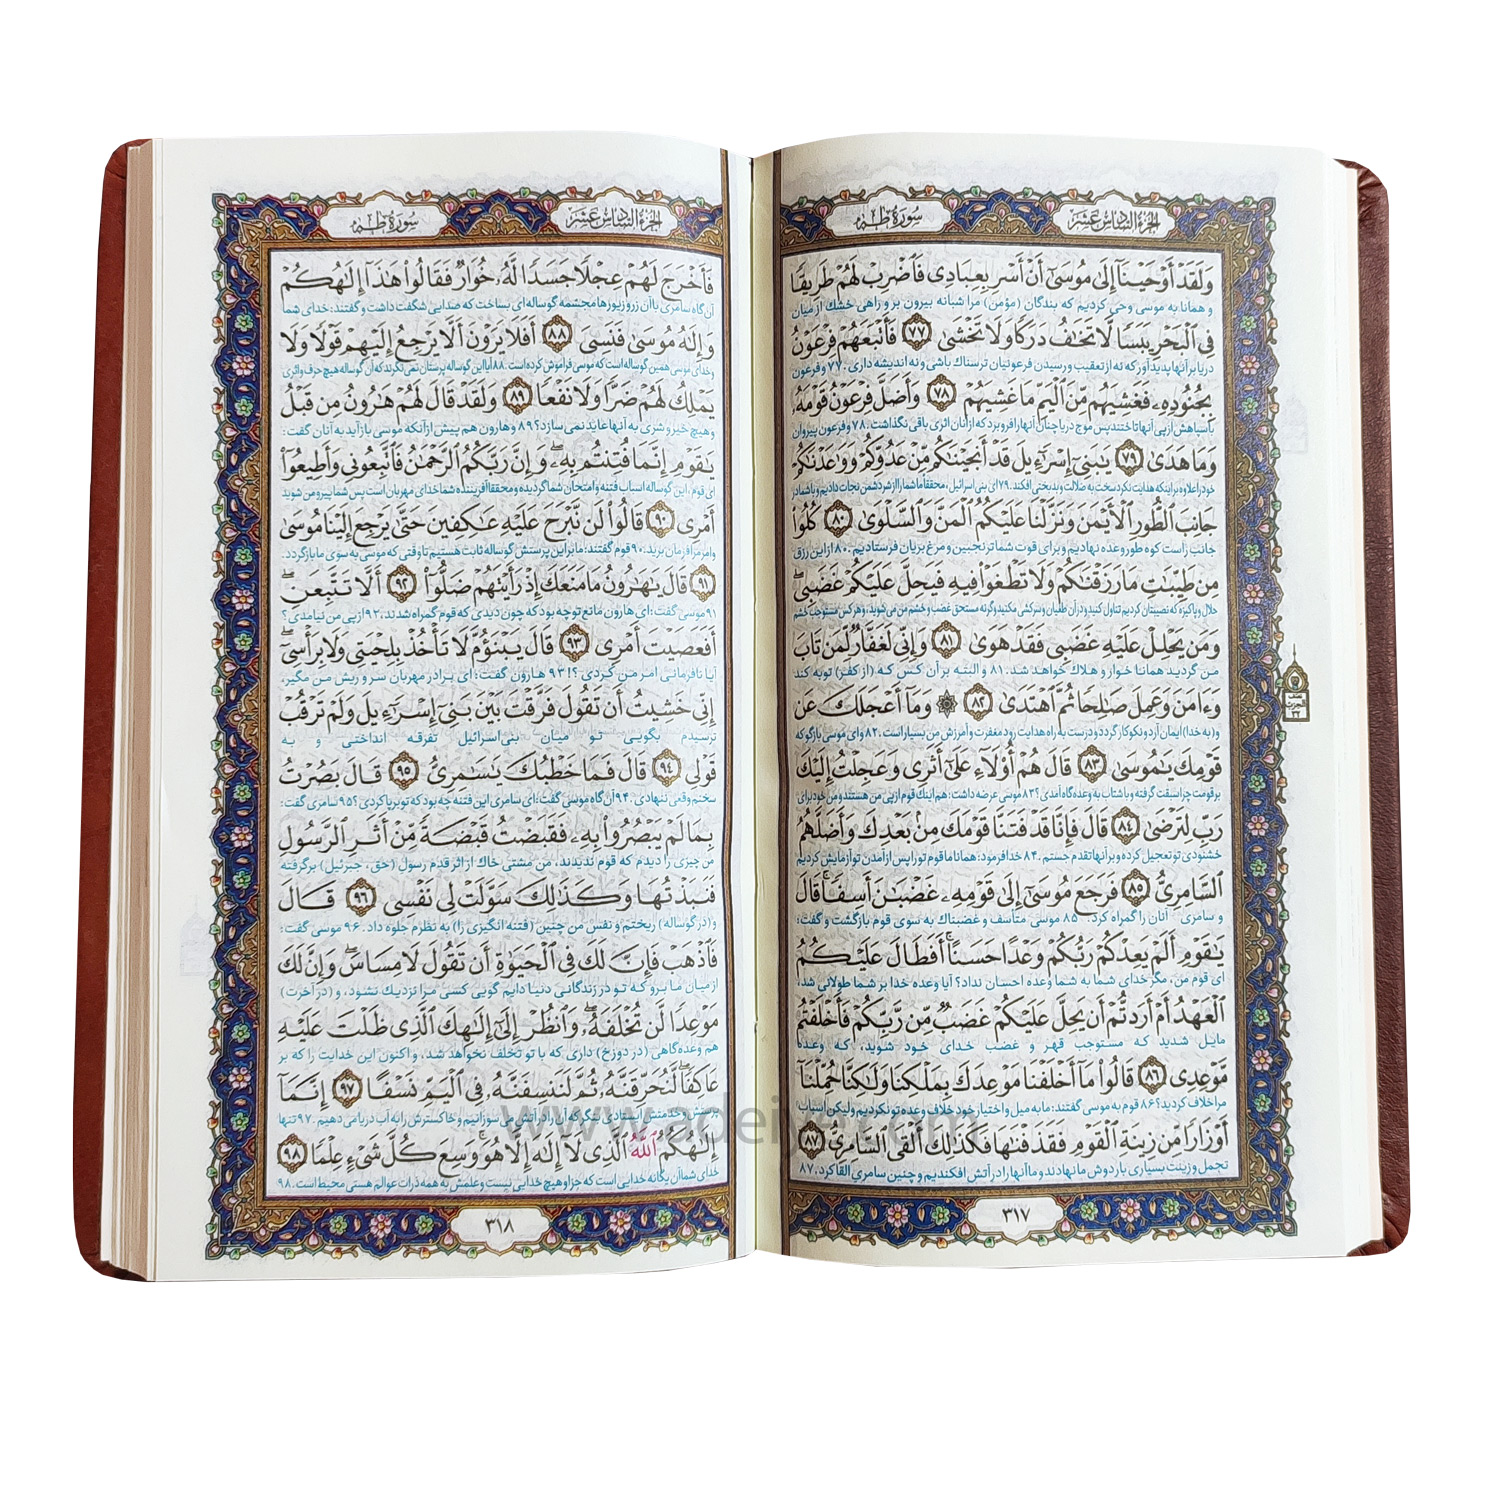 الجزء السادس عشر
سورة طه
وَلَقَدْ أَوْحَيْنَآ إِلَىٰ مُوسَىٰٓ أَنْ أَسْرِ بِعِبَادِى فَٱضْرِبْ لَهُمْ طَرِيقًا
و همانا به موسی وحی کردیم که بندگان (مؤمن) مرا شبانه بیرون بر و راهی خشک از میان
فِى ٱلْبَحْرِ يَبَسًا لَّا تَخَٰفُ دَرَكًا وَلَا تَخْشَىٰ ٧٧ فَأَتْبَعَهُمْ فِرْعَوْنُ
دریا بر آنها پدید آور که نه از تعقیب و رسیدن فرعونیان ترسناک باشی و نه اندیشه داری. ۷۷ و فرعون
بِجُنُودِهِۦ فَغَشِيَهُم مِّنَ ٱلْيَمِّ مَا غَشِيَهُمْ ٧٨ وَأَضَلَّ فِرْعَوْنُ قَوْمَهُۥ
با سپاهش از پی آنها تاختند پس موج دریا چنان آنها را فرو برد که از آنان اثری باقی نگذاشت. ۷۸ و فرعون پیروان
وَمَا هَدَىٰ ٧٩ يَٰبَنِىٓ إِسْرَٰٓءِيلَ قَدْ أَنجَيْنَٰكُم مِّنْ عَدُوِّكُمْ وَوَٰعَدْنَٰكُمْ
خود را علاوه بر اینکه هدایت نکرد سخت به ضلالت و بدبختی افکند. ۷۹ ای بنی اسرائیل، محققا ما شما را از شر دشمن نجات دادیم و با شما در
جَانِبَ ٱلطُّورِ ٱلْأَيْمَنَ وَنَزَّلْنَا عَلَيْكُمُ ٱلْمَنَّ وَٱلسَّلْوَىٰ ٨٠ كُلُوا۟
جانب راست کوه طور وعده نهادیم و برای قوت شما ترنجبین و مرغ بریان فرستادیم. ۸۰ از این رزق
مِن طَيِّبَٰتِ مَا رَزَقْنَٰكُمْ وَلَا تَطْغَوْا۟ فِيهِ فَيَحِلَّ عَلَيْكُمْ غَضَبِى ۖ
حلال و پاکیزه که نصیبتان کردیم تناول کنید و در آن طغیان و سرکشی مکنید وگرنه مستحق غضب و خشم من می‌شوید، و هر کس مستوجب خشم
وَمَن يَحْلِلْ عَلَيْهِ غَضَبِى فَقَدْ هَوَىٰ ٨١ وَإِنِّى لَغَفَّارٌ لِّمَن تَابَ
من گردید همانا خوار و هلاک خواهد شد. ۸۱ و البته بر آن کس که (از کفر) توبه کند
وَءَامَنَ وَعَمِلَ صَٰلِحًا ثُمَّ ٱهْتَدَىٰ ٨٢ ۞ وَمَآ أَعْجَلَكَ عَن
و (به خدا) ایمان آرد و نکوکار گردد و درست به راه هدایت رود مغفرت و آمرزش من بسیار است. ۸۲ و ای موسی بازگو که
قَوْمِكَ يَٰمُوسَىٰ ٨٣ قَالَ هُمْ أُو۟لَآءِ عَلَىٰٓ أَثَرِى وَعَجِلْتُ إِلَيْكَ
بر قومت چرا سبقت گرفته و با شتاب به وعده‌گاه آمدی؟ ۸۳ موسی عرضه داشت: هم اینک قوم از پی من هستند و من خود برای
رَبِّ لِتَرْضَىٰ ٨٤ قَالَ فَإِنَّا قَدْ فَتَنَّا قَوْمَكَ مِنۢ بَعْدِكَ وَأَضَلَّهُمُ
خشنودی تو تعجیل کرده و بر آنها تقدم جستم. ۸۴ خدا فرمود: همانا ما قوم تو را پس از آمدن تو آزمایش کردیم
ٱلسَّامِرِىُّ ٨٥ فَرَجَعَ مُوسَىٰٓ إِلَىٰ قَوْمِهِۦ غَضْبَٰنَ أَسِفًا ۚ قَالَ
و سامری آنان را گمراه کرد. ۸۵ موسی متأسف و غضبناک به سوی قوم بازگشت و گفت:
يَٰقَوْمِ أَلَمْ يَعِدْكُمْ رَبُّكُمْ وَعْدًا حَسَنًا ۚ أَفَطَالَ عَلَيْكُمُ
ای قوم من، مگر خدای شما به شما وعده احسان نداد؟ آیا وعده خدا بر شما طولانی شد،
ٱلْعَهْدُ أَمْ أَرَدتُّمْ أَن يَحِلَّ عَلَيْكُمْ غَضَبٌ مِّن رَّبِّكُمْ فَأَخْلَفْتُم
مایل شدید که مستوجب قهر و غضب خدای خود شوید، که وعده
مَّوْعِدِى ٨٦ قَالُوا۟ مَآ أَخْلَفْنَا مَوْعِدَكَ بِمَلْكِنَا وَلَٰكِنَّا حُمِّلْنَآ
مرا خلاف کردید؟ ۸۶ قوم به موسی گفتند: ما به میل و اختیار خود خلاف وعده تو نکردیم ولیکن اسباب
أَوْزَارًا مِّن زِينَةِ ٱلْقَوْمِ فَقَذَفْنَٰهَا فَكَذَٰلِكَ أَلْقَى ٱلسَّامِرِىُّ ٨٧
تجمل و زینت بسیاری بار دوش ما نهادند و ما آنها را در آتش افکندیم و چنین سامری القا کرد. ۸۷
٣١٧
نصف
الحزب
٣٢
الجزء السادس عشر
سورة طه
فَأَخْرَجَ لَهُمْ عِجْلًا جَسَدًا لَّهُۥ خُوَارٌ فَقَالُوا۟ هَٰذَآ إِلَٰهُكُمْ
آن گاه سامری با آن زر و زیورها مجسمه گوساله‌ای بساخت که صدایی شگفت داشت و گفتند: خدای شما
وَإِلَٰهُ مُوسَىٰ فَنَسِىَ ٨٨ أَفَلَا يَرَوْنَ أَلَّا يَرْجِعُ إِلَيْهِمْ قَوْلًا وَلَا
و خدای موسی همین گوساله است که موسی فراموش کرده است. ۸۸ آیا این گوساله پرستان نمی‌نگرند که آن گوساله هیچ حرف و اثری
يَمْلِكُ لَهُمْ ضَرًّا وَلَا نَفْعًا ٨٩ وَلَقَدْ قَالَ لَهُمْ هَٰرُونُ مِن قَبْلُ
و هیچ خیر و شری به آنها عاید نمی سازد؟ ۸۹ و هارون هم پیش از آنکه موسی باز آید به آنان گفت:
يَٰقَوْمِ إِنَّمَا فُتِنتُم بِهِۦ ۖ وَإِنَّ رَبَّكُمُ ٱلرَّحْمَٰنُ فَٱتَّبِعُونِى وَأَطِيعُوٓا۟
ای قوم، این گوساله اسباب فتنه و امتحان شما گردیده و محققا آفریننده شما خدای مهربان است پس شما پیرو من شوید
أَمْرِى ٩٠ قَالُوا۟ لَن نَّبْرَحَ عَلَيْهِ عَٰكِفِينَ حَتَّىٰ يَرْجِعَ إِلَيْنَا مُوسَىٰ
و امر مرا فرمان برید. ۹۰ قوم گفتند: ما بر این پرستش گوساله ثابت هستیم تا وقتی که موسی به سوی ما بازگردد.
٩١ قَالَ يَٰهَٰرُونُ مَا مَنَعَكَ إِذْ رَأَيْتَهُمْ ضَلُّوٓا۟ ٩٢ أَلَّا تَتَّبِعَنِ ۖ
۹۱ موسی گفت: ای هارون مانع تو چه بود که چون دیدی که قوم گمراه شدند، ۹۲ از پی من نیامدی؟
أَفَعَصَيْتَ أَمْرِى ٩٣ قَالَ يَبْنَؤُمَّ لَا تَأْخُذْ بِلِحْيَتِى وَلَا بِرَأْسِىٓ ۖ
آیا نافرمانی امر من کردی؟! ۹۳ هارون گفت: ای برادر مهربان سر و ریش من مگیر،
إِنِّى خَشِيتُ أَن تَقُولَ فَرَّقْتَ بَيْنَ بَنِىٓ إِسْرَٰٓءِيلَ وَلَمْ تَرْقُبْ
ترسیدم بگویی تو میان بنی‌اسرائیل تفرقه انداختی و به
قَوْلِى ٩٤ قَالَ فَمَا خَطْبُكَ يَٰسَٰمِرِىُّ ٩٥ قَالَ بَصُرْتُ
سخنم وقعی ننهادی. ۹۴ آن گاه موسی گفت: ای سامری این فتنه چه بود که تو برپا کردی؟ ۹۵ سامری گفت:
بِمَا لَمْ يَبْصُرُوا۟ بِهِۦ فَقَبَضْتُ قَبْضَةً مِّنْ أَثَرِ ٱلرَّسُولِ
من چیزی را دیدم که قوم ندیدند، من مشتی خاک از اثر قدم رسول (حق، جبرئیل) برگرفته
فَنَبَذْتُهَا وَكَذَٰلِكَ سَوَّلَتْ لِى نَفْسِى ٩٦ قَالَ
و (در گوساله) ریختم و نفس من چنین (فتنه انگیزی را) به نظرم جلوه داد. ۹۶ موسی گفت:
فَٱذْهَبْ فَإِنَّ لَكَ فِى ٱلْحَيَوٰةِ أَن تَقُولَ لَا مِسَاسَ ۖ وَإِنَّ لَكَ
از میان ما برو که تو در زندگانی دنیا دایم گویی کسی مرا نزدیک نشود، و (در آخرت)
مَوْعِدًا لَّن تُخْلَفَهُۥ ۖ وَٱنظُرْ إِلَىٰٓ إِلَٰهِكَ ٱلَّذِى ظَلْتَ عَلَيْهِ
هم وعده‌گاهی (در دوزخ) داری که با تو تخلف نخواهد شد، و اکنون این خدایت را که بر
عَاكِفًا ۖ لَّنُحَرِّقَنَّهُۥ ثُمَّ لَنَنسِفَنَّهُۥ فِى ٱلْيَمِّ نَسْفًا ٩٧ إِنَّمَآ
پرستش و خدمتش ایستادی بنگر که آن را در آتش می سوزانیم و خاکسترش را به آب دریا می دهیم. ۹۷ تنها
إِلَٰهُكُمُ ٱللَّهُ ٱلَّذِى لَآ إِلَٰهَ إِلَّا هُوَ ۚ وَسِعَ كُلَّ شَىْءٍ عِلْمًا ٩٨
خدای شما آن یگانه خدایی است که جز او هیچ خدایی نیست و علمش به همه ذرات عوالم هستی محیط است. ۹۸
٣١٨
www.adeiye.com